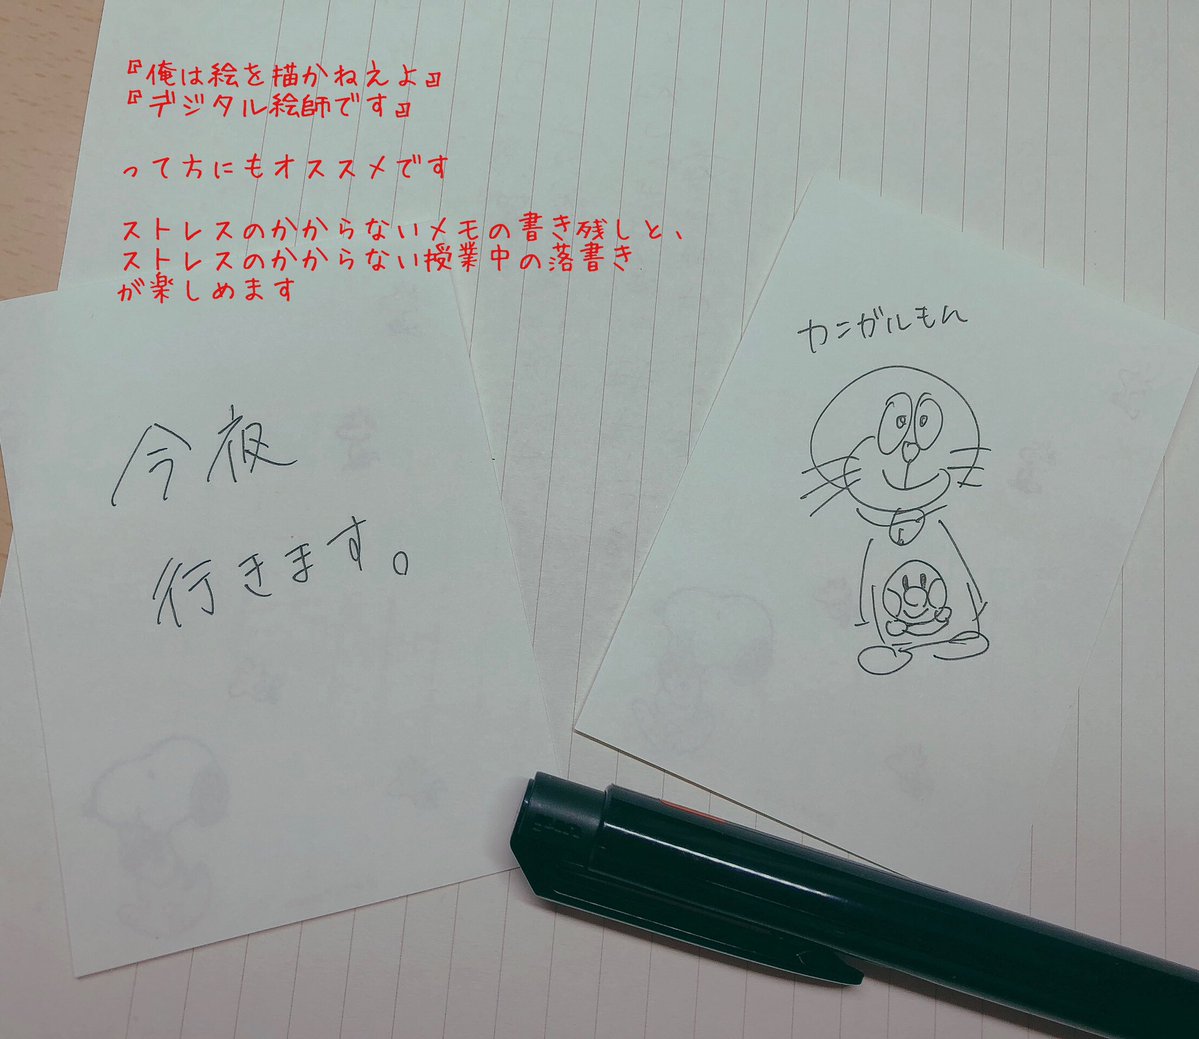 『俺は絵を描かねえよ』
『デジタル絵師です』
って方にもオススメです
ストレスのかからないメモの書き残しと、
ストレスのかからない授業中の落書き
が楽しめます
今夜
行きます。
カンガルもん